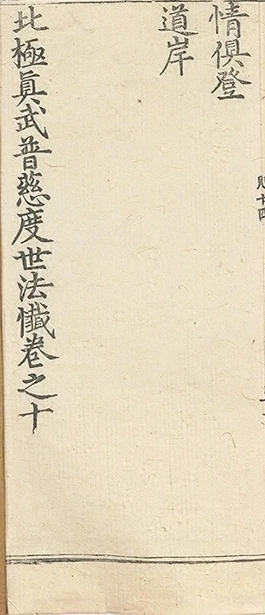 情俱登
道岸
北極眞武普慈度世法懺卷之十